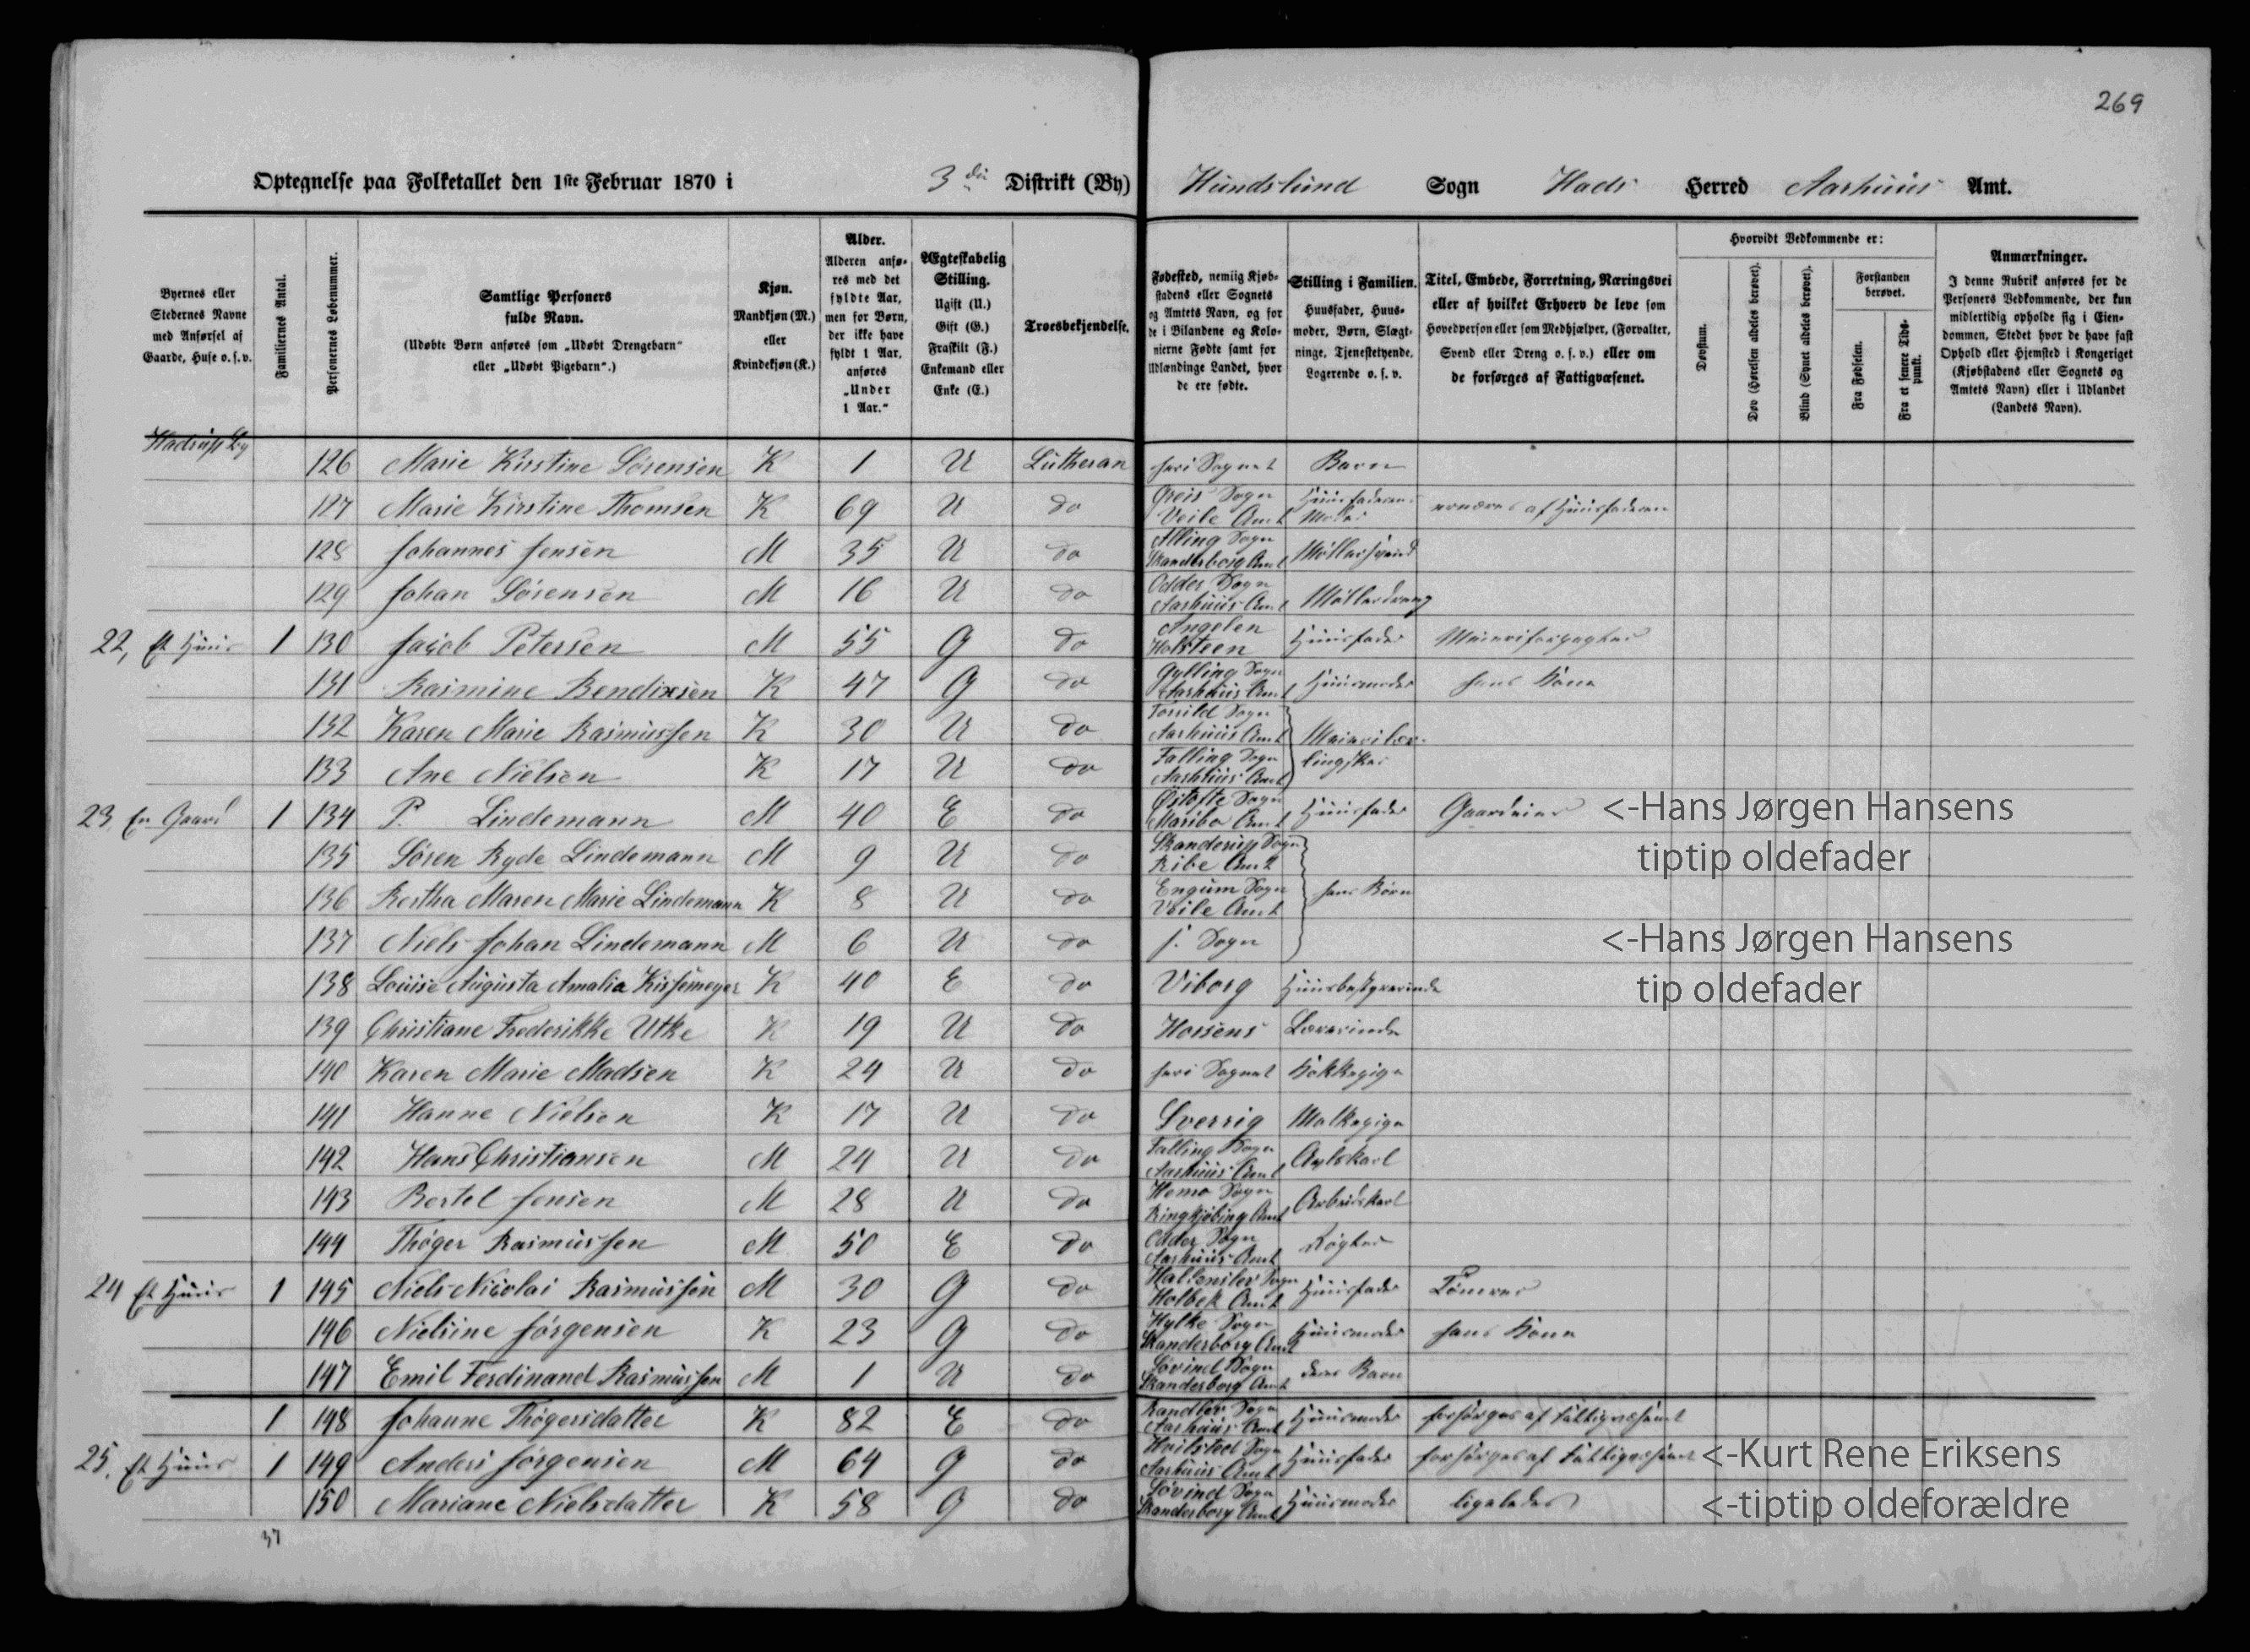 269
Optegnelse paa Folketallet den 1ste Februar 1870 i 3die Distrikt (By) Hundslund Sogn Hads Herred Aarhuus Amt.
Byernes eller
Stedernes Navne
med Anførsel af
Gaarde, Huse o. s. v.
Familiernes Antal.
Personernes Løbenummer.
Samtlige Personers
fulde Navn.
(Udøbte Børn anføres som „Udøbt Drengebarn“
eller „Udøbt Pigebarn“.)
Kjøn.
Mandkjøn (M.)
eller
Kvindekjøn (K.)
Alder.
Alderen anfø-
res med det
fyldte Aar,
men for Børn,
der ikke have
fyldt 1 Aar,
anføres
„Under
1 Aar.“
Ægteskabelig
Stilling.
Ugift (U.)
Gift (G.)
Fraskilt (F.)
Enkemand eller
Enke (E.)
Troesbekjendelse.
Fødested, nemlig Kjøb-
stadens eller Sognets
og Amtets Navn, og for
de i Bilandene og Kolo-
nierne Fødte samt for
Udlændinge Landet, hvor
de ere fødte.
Stilling i Familien.
Huusfader, Huus-
moder, Børn, Slægt-
ninge, Tjenestetyende,
Logerende o. s. v.
Titel, Embede, Forretning, Næringsvei
eller af hvilket Erhverv de leve som
Hovedperson eller som Medhjælper, (Forvalter,
Svend eller Dreng o. s. v.) eller om
de forsørges af Fattigvæsenet.
Hvorvidt Vedkommende er:
Døvstum.
Døv (Hørelsen aldeles berøvet).
Blind (Synet aldeles berøvet).
Forstanden
berøvet.
Fra Fødselen.
Fra et senere Tids-
punkt.
Anmærkninger.
I denne Rubrik anføres for de
Personers Vedkommende, der kun
midlertidig opholde sig i Eien-
dommen, Stedet hvor de have fast
Ophold eller Hjemsted i Kongeriget
(Kjøbstadens eller Sognets og
Amtets Navn) eller i Udlandet
(Landets Navn).
Hadrup By
126 Marie Kirstine Sørensen K 1 U Lutheran her i Sognet Barn
127 Marie Kirstine Thomsen K 69 U do Greis Sogn Veile Amt Huusfaderens Moder ernæres af Huusfaderen
128 Johannes Jensen M 35 U do Alling Sogn Skanderborg Amt Møllersvend
129 Johan Sørensen M 16 U do Odder Sogn Aarhuus Amt Møllerdreng
22, Et Huus 1 130 Jacob Petersen M 55 G do Angelen Holsteen Huusfader Meieriforpagter
131 Rasmine Bendixsen K 47 G do Gylling Sogn Aarhuus Amt Huusmoder hans Kone
132 Karen Marie Rasmussen K 30 U do Torrild Sogn Aarhuus Amt Meierilær-
133 Ane Nielsen K 17 U do Falling Sogn Aarhuus Amt lingsker
23, En Gaard 1 134 P. Lindemann M 40 E do Østofte Sogn Maribo Amt Huusfader Gaardeier <-Hans Jørgen Hansens
135 Søren Ryde Lindemann M 9 U do Skanderup Sogn Ribe Amt tiptip oldefader
136 Bertha Maren Marie Lindemann K 8 U do Engum Sogn Veile Amt hans Børn
137 Niels Johan Lindemann M 6 U do h. Sogn <-Hans Jørgen Hansens
138 Louise Augusta Amalia Kissemeyer K 40 E do Viborg Huusbestyrerinde tip oldefader
139 Christiane Frederikke Utke K 19 U do Horsens Lærerinde
140 Karen Marie Madsen K 24 U do her i Sognet Kokkepige
141 Hanne Nielsen K 17 U do Sverrig Malkepige
142 Hans Christiansen M 24 U do Falling Sogn Aarhuus Amt Avlskarl
143 Bertel Jensen M 28 U do Hemo Sogn Ringkjøbing Amt Arbeidskarl
144 Thøger Rasmussen M 50 E do Odder Sogn Aarhuus Amt Røgter
24 Et Huus 1 145 Niels Nicolai Rasmussen M 30 G do Hallenslev Sogn Holbek Amt Huusfader Tømrer
146 Nielsine Jørgensen K 23 G do Hylke Sogn Skanderborg Amt Huusmoder hans Kone
147 Emil Ferdinand Rasmussen M 1 U do Søvind Sogn Skanderborg Amt deres Barn
1 148 Johanne Thøgersdatter K 82 E do Randlev Sogn Aarhuus Amt Huusmoder forsørges af Fattigvæsenet
25, Et Huus 1 149 Anders Jørgensen M 64 G do Hvilsted Sogn Aarhuus Amt Huusfader forsørges af Fattigvæsenet <-Kurt Rene Eriksens
150 Mariane Nielsdatter K 58 G do Søvind Sogn Skanderborg Amt Huusmoder ligeledes <-tiptip oldeforældre
37